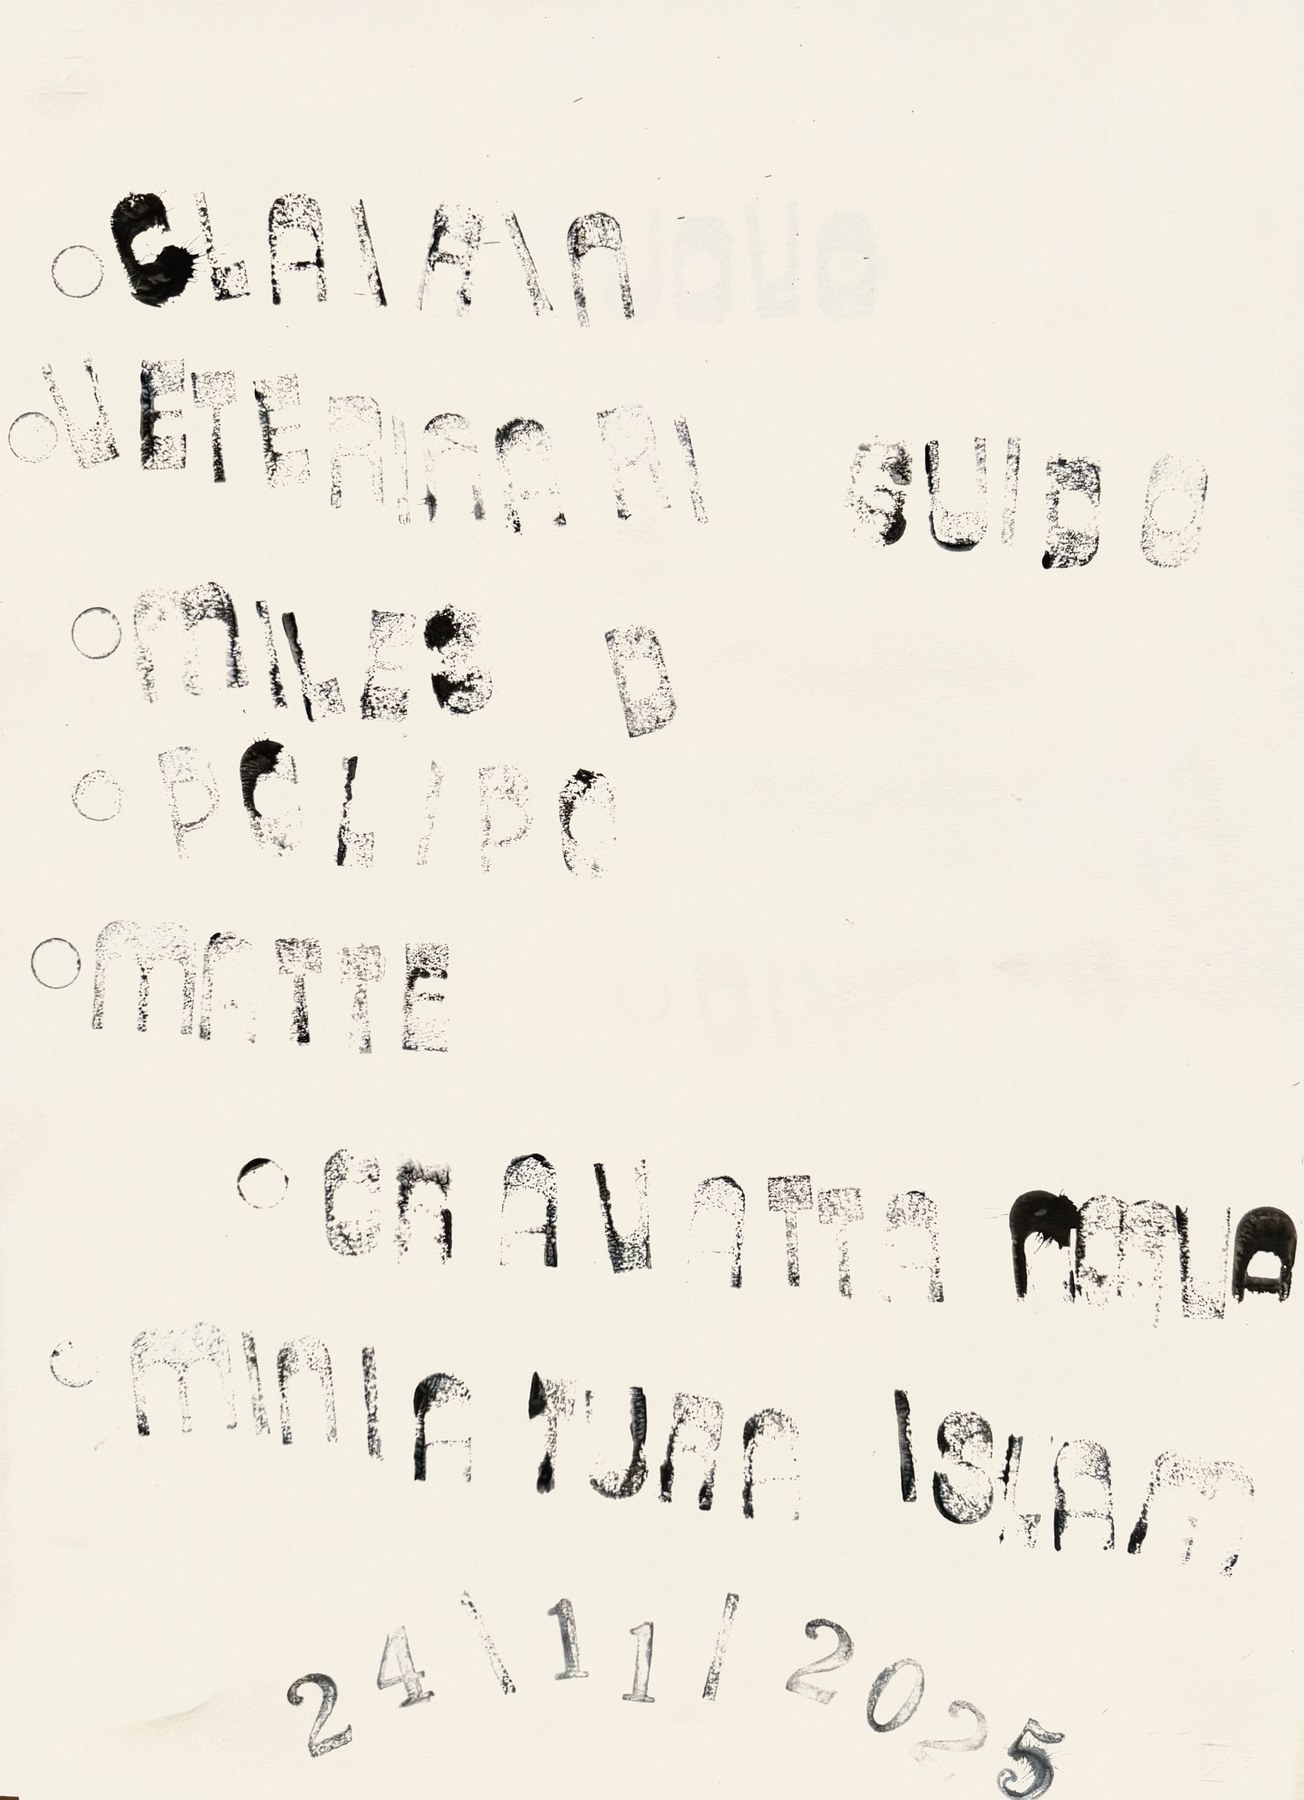 VETERINARI GUIDO
MILES D
POLIPO
MATTE
CRAVATTA
MINIATURA ISLAM
24\11/2025